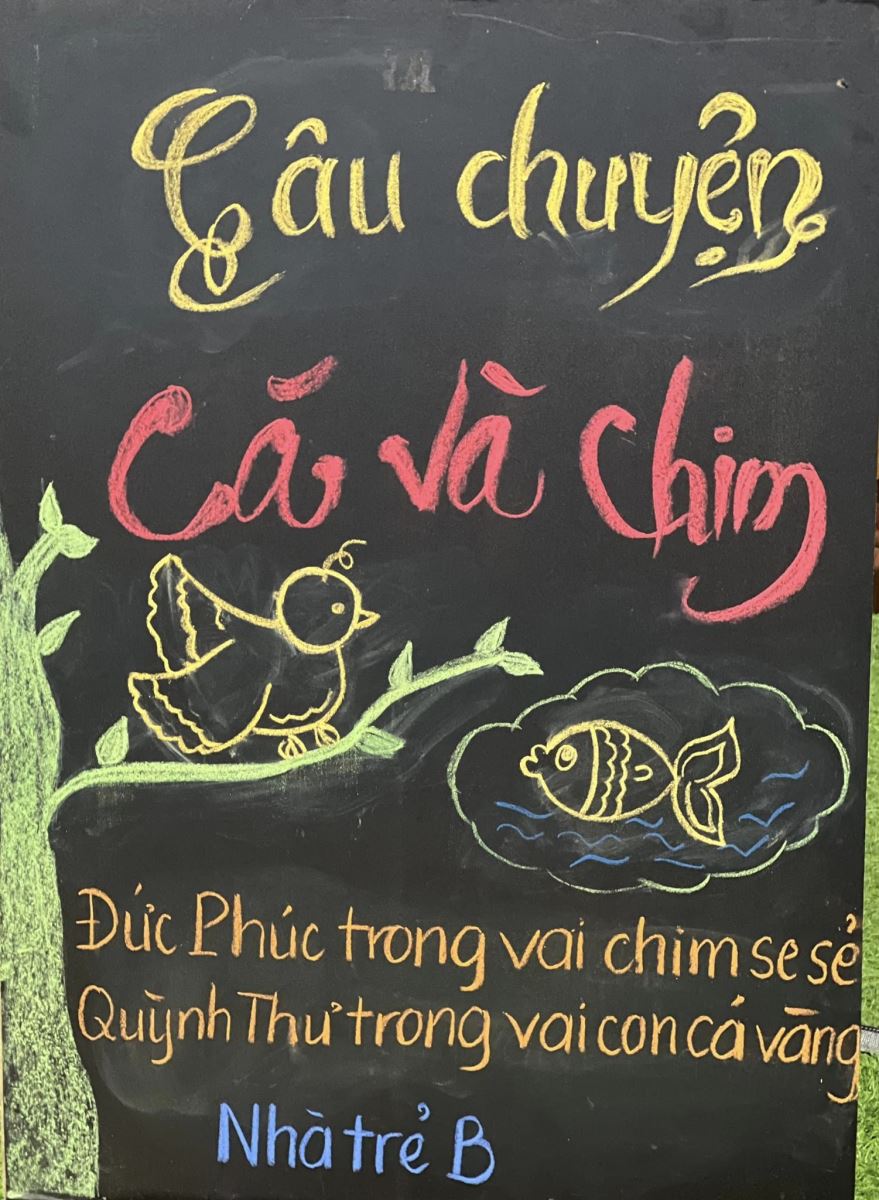 Câu chuyện
Cá và Chim
Đức Phúc trong vai chim se sẻ
Quỳnh Thư trong vai con cá vàng
Nhà trẻ B